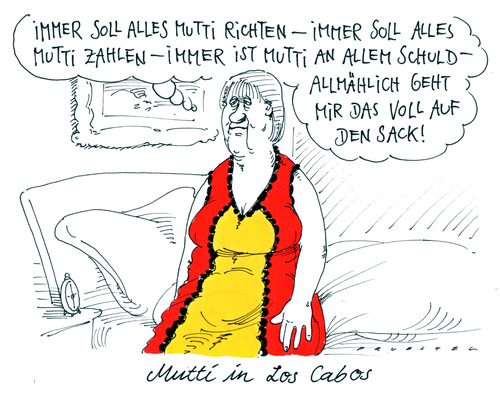 IMMER SOLL ALLES MUTTI RICHTEN – IMMER SOLL ALLES
MUTTI ZAHLEN – IMMER IST MUTTI AN ALLEM SCHULD –
ALLMÄHLICH GEHT
MIR DAS VOLL AUF
DEN SACK!
PRUESTEL
Mutti in Los Cabos